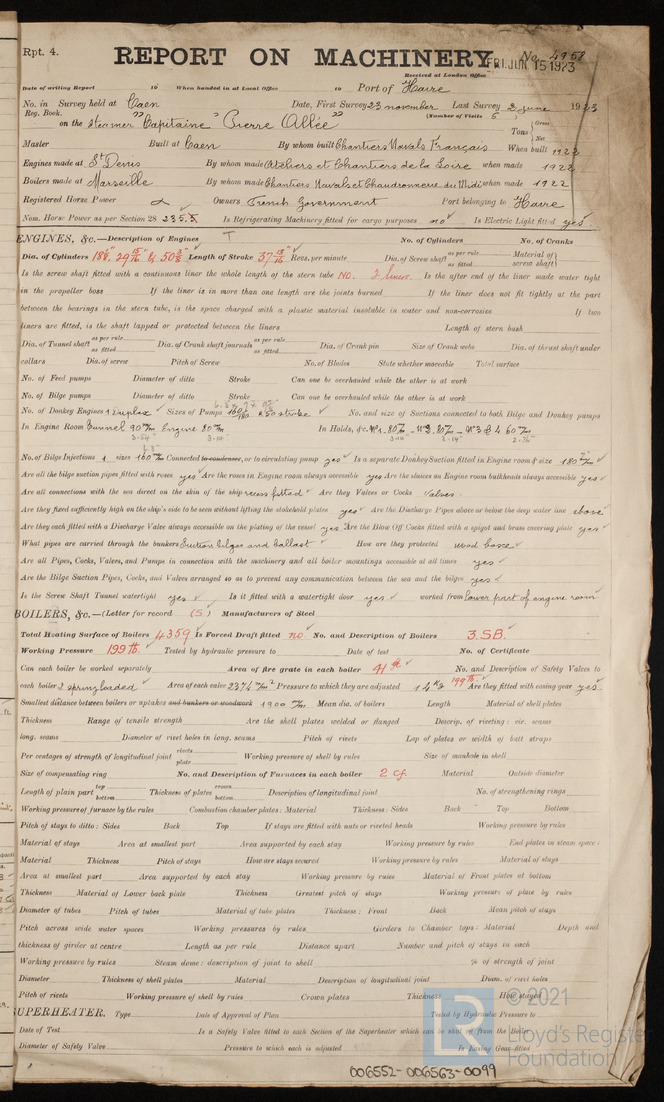 Rpt. 4.
REPORT ON MACHINERY
No. 4958
FRI. JUN 15 1923
Received at London Office
Date of writing Report 19 When handed in at Local Office 19 Port of Havre
No. in Survey held at Caen Date, First Survey 23 november Last Survey 2 june 1923
Reg. Book. (Number of Visits 5)
on the Steamer "Capitaine" Pierre Allée" Tons { Gross Net
Master Built at Caen By whom built Chantiers Navals Français When built 1922
Engines made at St Denis By whom made Ateliers et Chantiers de la Loire when made 1922
Boilers made at Marseille By whom made Chantiers Navals et Chaudronnerie du Midi when made 1922
Registered Horse Power Owners French Government Port belonging to Havre
Nom. Horse Power as per Section 28 235.5 Is Refrigerating Machinery fitted for cargo purposes no Is Electric Light fitted yes
ENGINES, &c.—Description of Engines T No. of Cylinders No. of Cranks
Dia. of Cylinders Length of Stroke Revs. per minute Dia. of Screw shaft as per rule as fitted Material of screw shaft
Is the screw shaft fitted with a continuous liner the whole length of the stern tube NO. 2 liners Is the after end of the liner made water tight
in the propeller boss If the liner is in more than one length are the joints burned If the liner does not fit tightly at the part
between the bearings in the stern tube, is the space charged with a plastic material insoluble in water and non-corrosive If two
liners are fitted, is the shaft lapped or protected between the liners Length of stern bush
Dia. of Tunnel shaft as per rule as fitted Dia. of Crank shaft journals as per rule as fitted Dia. of Crank pin Size of Crank webs Dia. of thrust shaft under
collars Dia. of screw Pitch of Screw No. of Blades State whether moceable Total surface
No. of Feed pumps Diameter of ditto Stroke Can one be overhauled while the other is at work
No. of Bilge pumps Diameter of ditto Stroke Can one be overhauled while the other is at work
No. of Donkey Engines 1 Duplex Sizes of Pumps No. and size of Suctions connected to both Bilge and Donkey pumps
In Engine Room Tunnel 90 m/m Engine 80 m/m In Holds, &c. No1. 80 m/m - No2. 80 m/m - No3 & 4 60 m/m
No. of Bilge Injections 1 sizes 160 m/m Connected to condenser, or to circulating pump yes Is a separate Donkey Suction fitted in Engine room & size 180 m/m
Are all the bilge suction pipes fitted with roses yes Are the roses in Engine room always accessible yes Are the sluices on Engine room bulkheads always accessible yes
Are all connections with the sea direct on the skin of the ship recess fitted Are they Valves or Cocks Valves
Are they fixed sufficiently high on the ship's side to be seen without lifting the stokehold plates yes Are the Discharge Pipes above or below the deep water line above
Are they each fitted with a Discharge Valve always accessible on the plating of the vessel yes Are the Blow Off Cocks fitted with a spigot and brass covering plate yes
What pipes are carried through the bunkers Suction bilges and ballast How are they protected wood boxe
Are all Pipes, Cocks, Valves, and Pumps in connection with the machinery and all boiler mountings accessible at all times yes
Are the Bilge Suction Pipes, Cocks, and Valves arranged so as to prevent any communication between the sea and the bilges yes
Is the Screw Shaft Tunnel watertight yes Is it fitted with a watertight door yes worked from lower part of engine room
BOILERS, &c.—(Letter for record (S) Manufacturers of Steel
Total Heating Surface of Boilers 4359 Is Forced Draft fitted no No. and Description of Boilers 3.SB.
Working Pressure 199 lb. Tested by hydraulic pressure to Date of test No. of Certificate
Can each boiler be worked separately Area of fire grate in each boiler 41 No. and Description of Safety Valves to
each boiler 2 spring loaded Area of each valve 2374 m/m² Pressure to which they are adjusted 14 Kg 199 lb. Are they fitted with easing gear yes
Smallest distance between boilers or uptakes and bunkers or woodwork 1900 m/m Mean dia. of boilers Length Material of shell plates
Thickness Range of tensile strength Are the shell plates welded or flanged Descrip. of riveting: cir. seams
long. seams Diameter of rivet holes in long. seams Pitch of rivets Lap of plates or width of butt straps
Per centages of strength of longitudinal joint rivets plate Working pressure of shell by rules Size of manhole in shell
Size of compensating ring No. and Description of Furnaces in each boiler 2 cf. Material Outside diameter
Length of plain part top bottom Thickness of plates crown bottom Description of longitudinal joint No. of strengthening rings
Working pressure of furnace by the rules Combustion chamber plates: Material Thickness: Sides Back Top Bottom
Pitch of stays to ditto: Sides Back Top If stays are fitted with nuts or riveted heads Working pressure by rules
Material of stays Area at smallest part Area supported by each stay Working pressure by rules End plates in steam space:
Material Thickness Pitch of stays How are stays secured Working pressure by rules Material of stays
Area at smallest part Area supported by each stay Working pressure by rules Material of Front plates at bottom
Thickness Material of Lower back plate Thickness Greatest pitch of stays Working pressure of plate by rules
Diameter of tubes Pitch of tubes Material of tube plates Thickness: Front Back Mean pitch of stays
Pitch across wide water spaces Working pressures by rules Girders to Chamber tops: Material Depth and
thickness of girder at centre Length as per rule Distance apart Number and pitch of stays in each
Working pressure by rules Steam dome: description of joint to shell % of strength of joint
Diameter Thickness of shell plates Material Description of longitudinal joint Diam. of rivet holes
Pitch of rivets Working pressure of shell by rules Crown plates Thickness How stayed
SUPERHEATER. Type Date of Approval of Plan Tested by Hydraulic Pressure to
Date of Test Is a Safety Valve fitted to each Section of the Superheater which can be shut off from the Boiler
Diameter of Safety Valve Pressure to which each is adjusted Is Easing Gear fitted
© 2021
Lloyd's Register
Foundation
006552-006563-0099